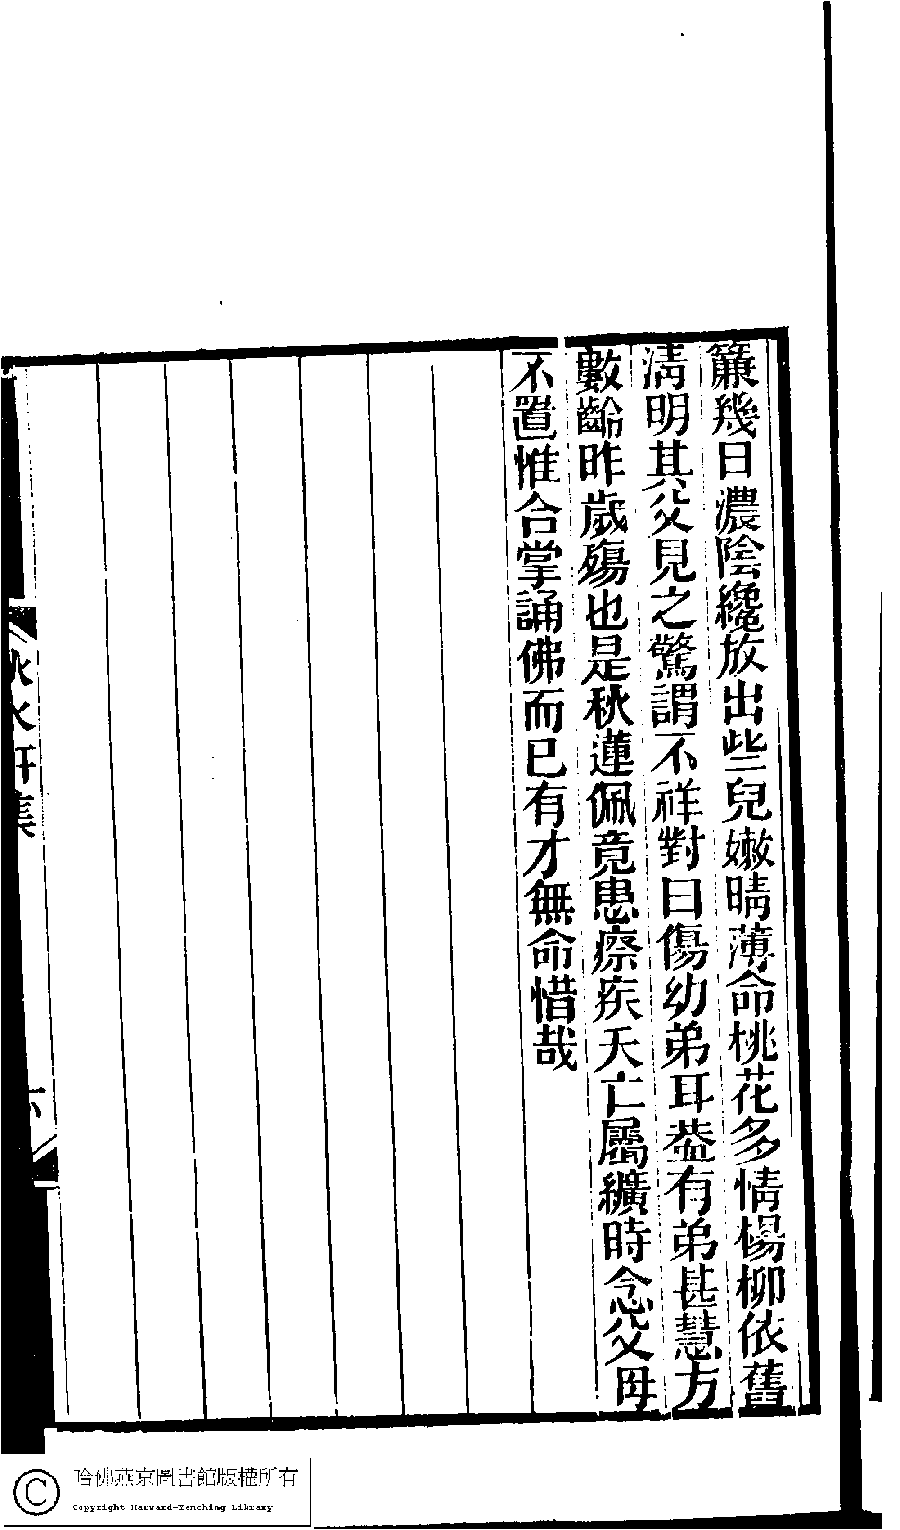 簾幾日濃陰纔放出些兒嫩晴薄命桃花多情楊柳依舊
淸明其父見之驚謂不祥對曰傷幼弟耳葢有弟甚慧方
數齡昨歲殤也是秋蓮佩竟患瘵疾夭亡屬纊時念父母
不置惟合掌誦佛而已有才無命惜哉
秋水軒集
六
哈佛燕京圖書館版權所有
Copyright Harvard-Yenching Library